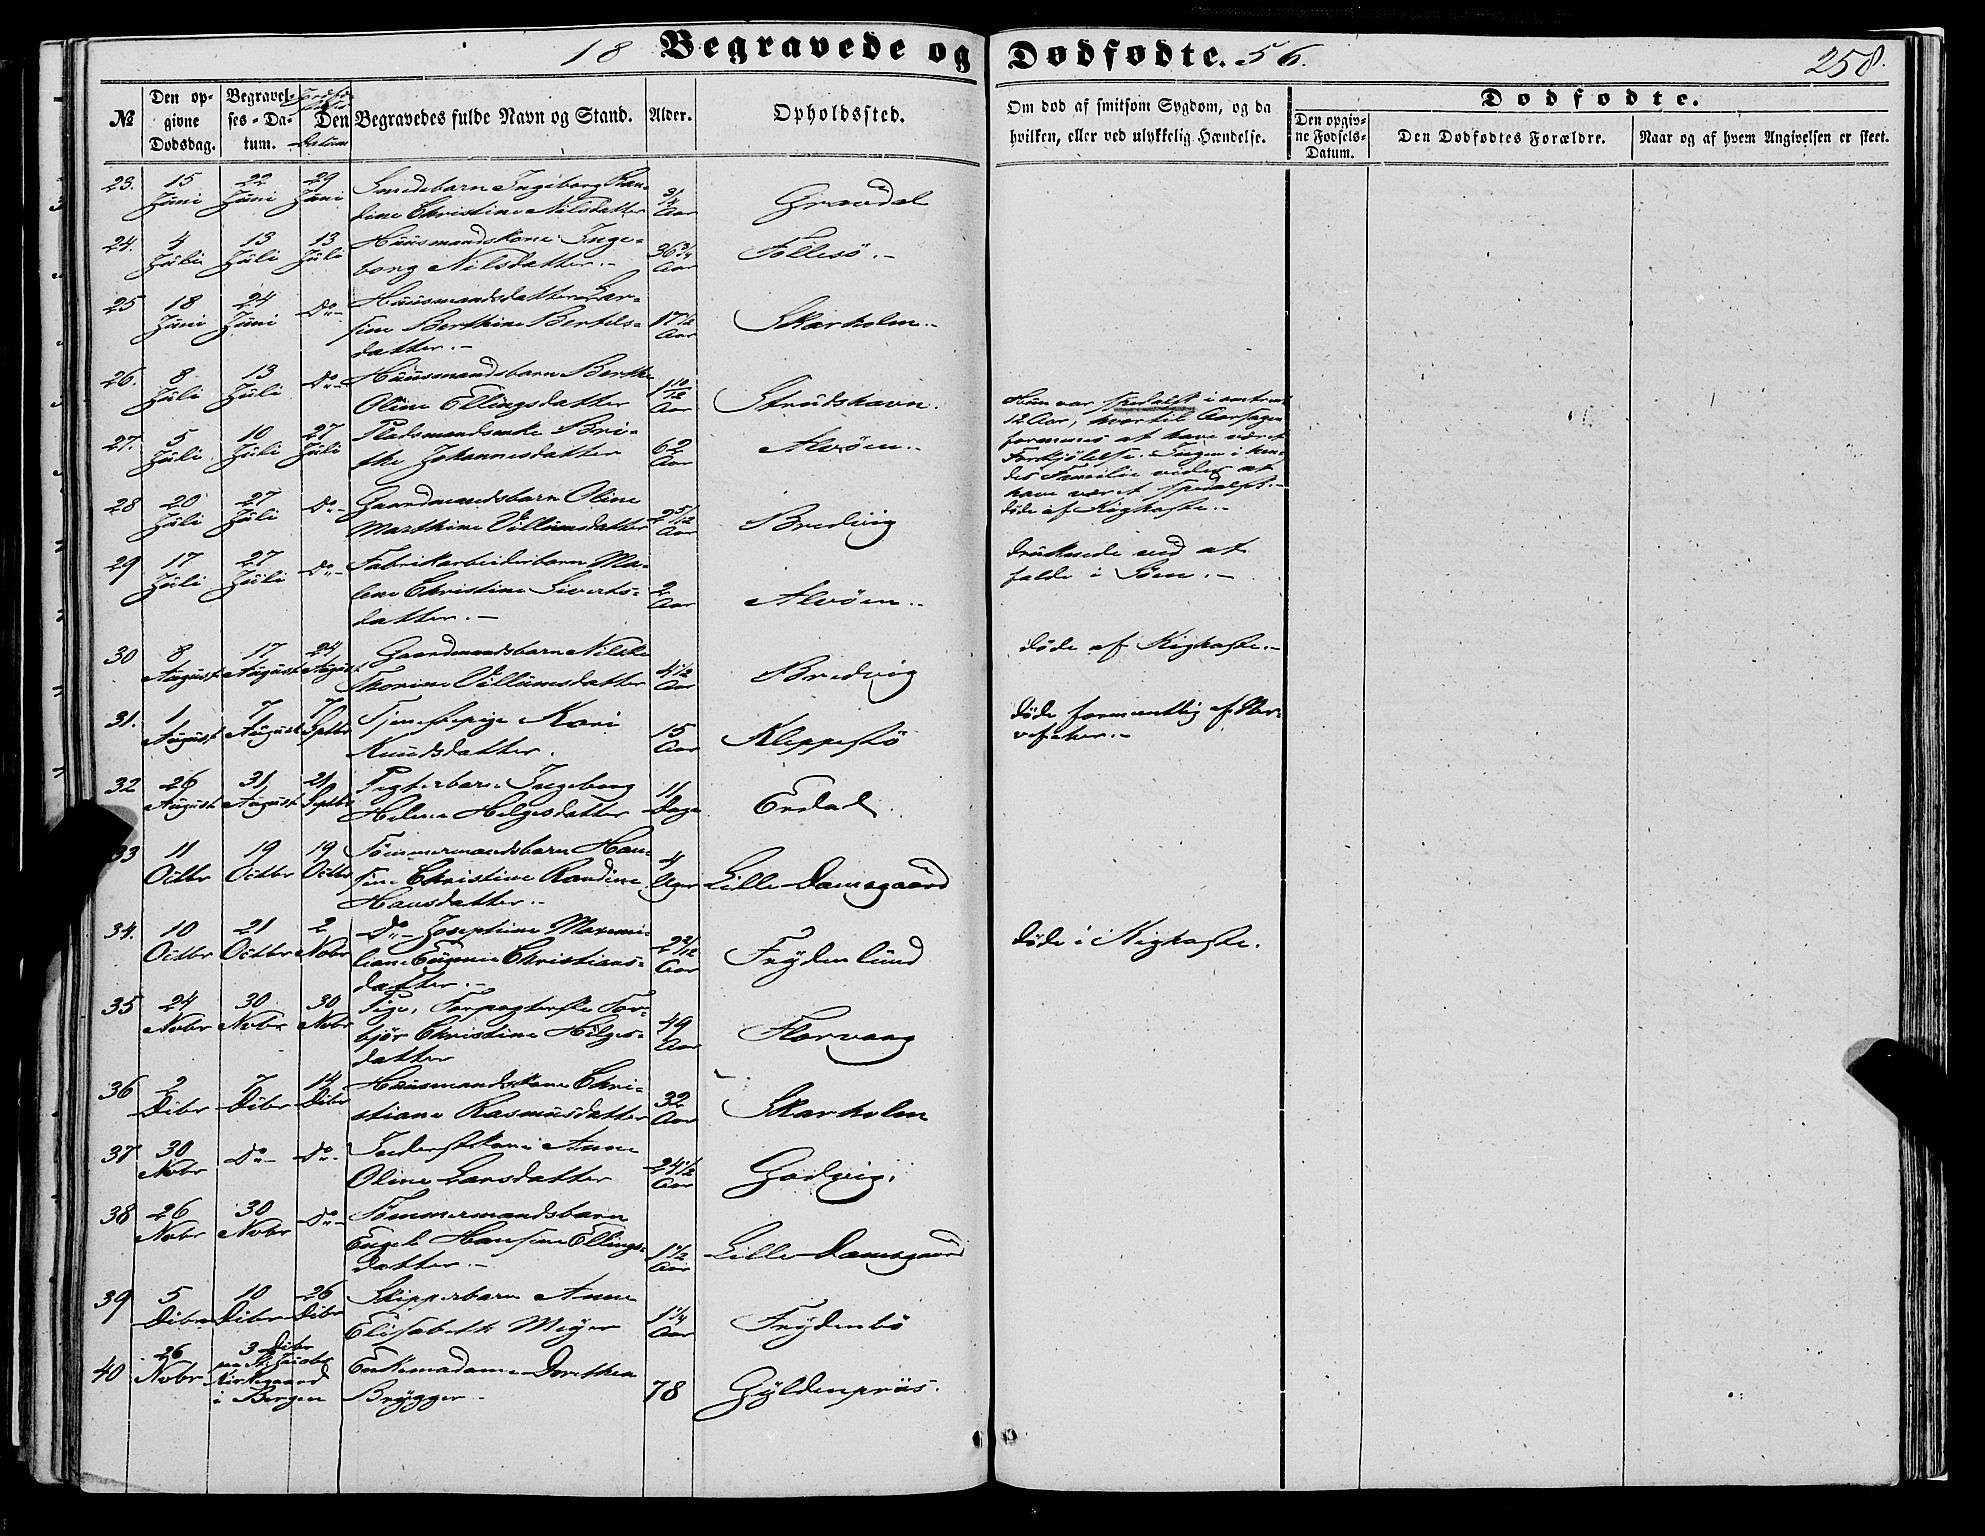 18 Begravede og Dødfødte. 56.
258.
№
Den opgivne Dødsdag.
Begravelses-Datum.
Den
Datum
Begravedes fulde Navn og Stand.
Alder.
Opholdssted.
Om død af smitsom Sygdom, og da
hvilken, eller ved ulykkelig Hændelse.
Dødfødte.
Den opgivne Fødsels-Datum.
Den Dødfødtes Forældre.
Naar og af hvem Angivelsen er skeet.
23. 15 Juni 22 Juni 29 Juni Smedebarn Ingeborg Ran-
dine Christine Nilsdatter 3/4 Aar Gravdal
24. 4 Juli 13 Juli 13 Juli Huusmandskone Inge-
borg Nilsdatter.- 36 3/4 Aar Follesø.-
25 18 Juni 24 Juni Do- Huusmandsdatter Lar-
sine Berthine Bertels-
datter.- 17 1/2 Aar Skarholm.-
26. 8 Juli 13 Juli Do- Huusmandsbarn Berthe
Oline Ellingsdatter 1 10/12 Aar Strudshavn.
27. 5 Juli 10 Juli 27 Juli Pladsmandsenke Bri-
the Johannesdatter 62 Aar Alvøen.-
Hun var spedalsk i omtrent
12 Aar, hvortil Aarsagen
formenes at have været
Forkjølelse. Ingen i hen-
des Familie vides at
have været spedalsk.-
28 20 Juli 27 Juli Do- Gaardmandsbarn Oline
Marthine Villumsdatter 2 5/12 Aar Bredvig
døde af Kighoste.-
29 17 Juli 27 Juli Do- Fabrikarbeiderbarn Ma-
lene Christine Siverts-
datter.- 2 Aar Alvøen.-
druknede ved at
falde i Søen.-
30 8 August 17 August 24 August Gaardmandsbarn Nilske
Thorine Villumsdatter 4 1/2 Aar Bredvig
døde af Kighoste.-
31. 1 August 7 August 7 Septbr Tjenestepige Kari
Knudsdatter. 15 Aar Kleppestø
døde formentlig af Ner-
vefeber.-
32 26 August 31 August 21 Septbr Pigebarn Ingeborg
Helene Helgesdatter 11 Dage Erdal.
33 11 Octbr 19 Octbr 19 Octbr Tømmermandsbarn Han-
sine Christine Randine
Hansdatter.- 4 Uger Lille-Damsgaard
34. 10 Octbr 21 Octbr 2 Nobr Do- Josephine Maxemi-
liane Eugenie Christians-
datter.- 2 2/12 Aar Frydenlund
døde i Kighoste.
35 24 Nobr 30 Nobr 30 Nobr Pige, Forpagterske Tor-
bjør Christine Helges-
datter 49 Aar Florvaag
36 2 Dcbr 7 Dcbr 14 Dcbr Huusmandskone Chri-
stiane Rasmusdatter 32 Aar Skarholm
37 30 Nobr Do- Do- Inderstkone Anne
Oline Larsdatter 24 1/2 Aar Godvig.
38 26 Nobr 30 Nobr Do- Tømmermandsbarn
Engel Hansine Ellings-
datter.- 1 1/2 Aar Lille-Damsgaard
39 5 Dcbr 10 Dcbr 26 Dcbr Skipperbarn Anne
Elisabeth Meyer 1 1/4 Aar Frydenbø
40 26 Nobr 3 Dcbr
Kirkegaard
i Bergen Enkemadame Dorothea
Brygger- 78 Gyldenpriis.